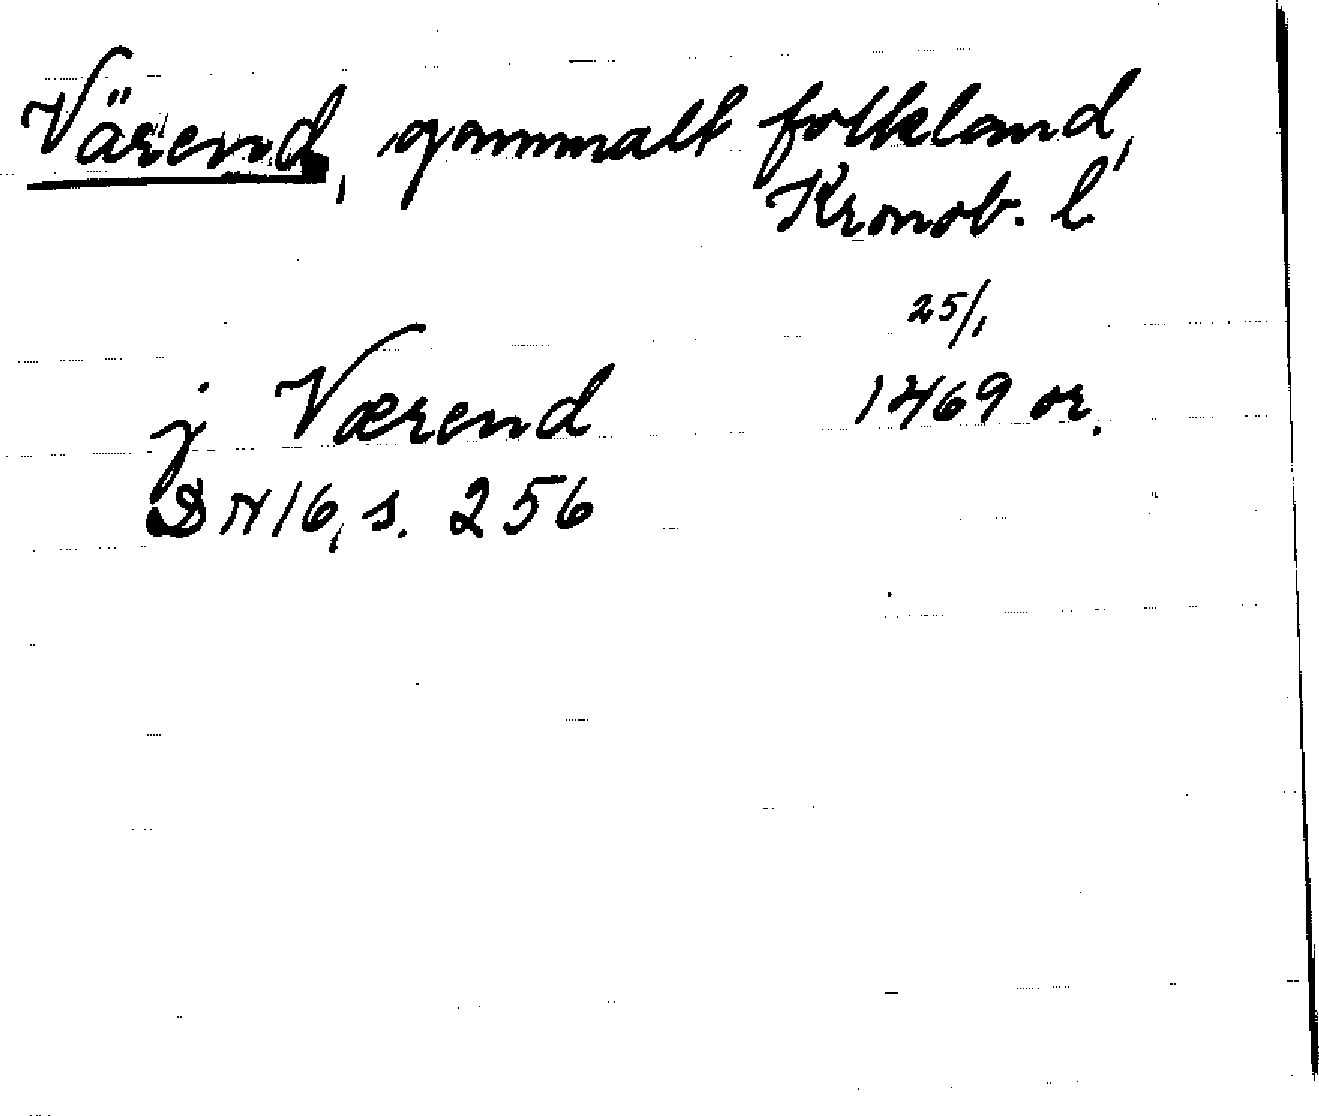 Värend, gammalt folkland,
Kronob. l
25/1
jVærend 1469 or.
DN 16, s. 256